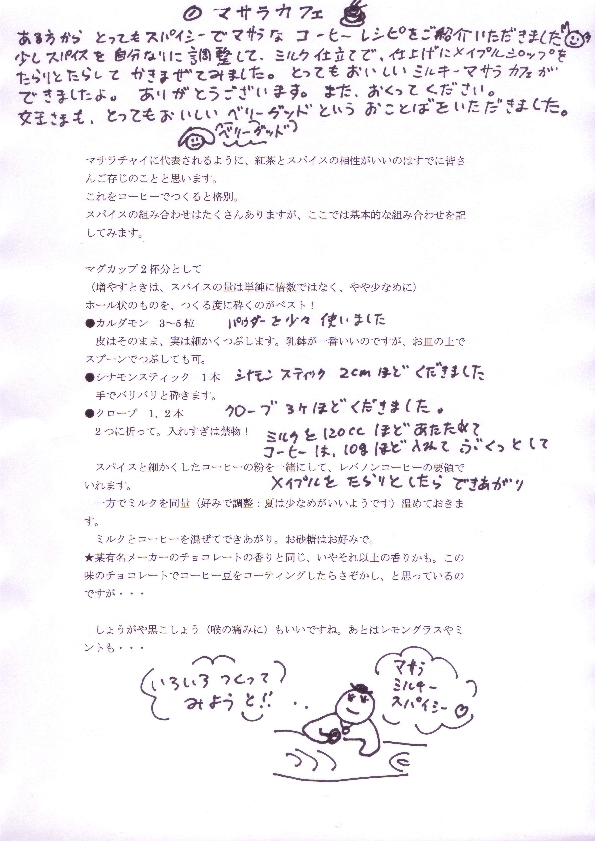 ◎ マサラカフェ
ある方から とってもスパイシーでマサラな コーヒーレシピをご紹介いただきました
少しスパイスを自分なりに調整して、ミルク仕立てで、仕上げにメイプルシロップを
たらりとたらして かきまぜてみました。とってもおいしいミルキーマサラカフェが
できましたよ。 ありがとうございます。また、おくってください。
女王さまも、とってもおいしい ベリーグッドという おことばをいただきました。
ベリーグッド
マサジチャイに代表されるように、紅茶とスパイスの相性がいいのはすでに皆さ
んご存じのことと思います。
これをコーヒーでつくると格別。
スパイスの組み合わせはたくさんありますが、ここでは基本的な組み合わせを記
してみます。
マグカップ２杯分として
（増やすときは、スパイスの量は単純に倍数ではなく、やや少なめに）
ホール状のものを、つくる度に砕くのがベスト！
●カルダモン　3～5粒 パウダーを少々 使いました
皮はそのまま、実は細かくつぶします。乳鉢が一番いいのですが、お皿の上で
スプーンでつぶしても可。
●シナモンスティック　１本 シナモン スティック 2cmほどくだきました
手でバリバリと砕きます。
●クローブ　１、２本 クローブ 3ケほどくだきました。
２つに折って。入れすぎは禁物！ ミルクを120ccほどあたためて
コーヒーは、10gほど入れて ぶくっとして
スパイスと細かくしたコーヒーの粉を一緒にして、レバノンコーヒーの要領で
いれます。 メイプルを たらりとしたら できあがり
一方でミルクを同量（好みで調整：夏は少なめがいいようです）温めておきま
す。
ミルクとコーヒーを混ぜてできあがり。お砂糖はお好みで。
★某有名メーカーのチョコレートの香りと同じ、いやそれ以上の香りかも。この
味のチョコレートでコーヒー豆をコーティングしたらさぞかし、と思っているの
ですが・・・
しょうがや黒こしょう（喉の痛みに）もいいですね。あとはレモングラスやミ
ントも・・・
いろいろ つくって
みようと!!
マサラ
ミルキー
スパイシー